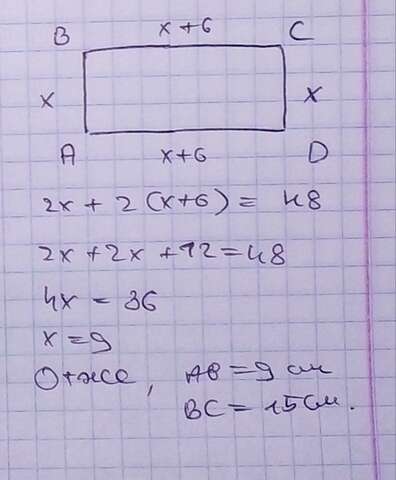 B x+6 C
x x
A x+6 D
2x + 2(x+6) = 48
2x+2x+12=48
4x = 36
x=9
Отже, AB=9 см
BC=15см.